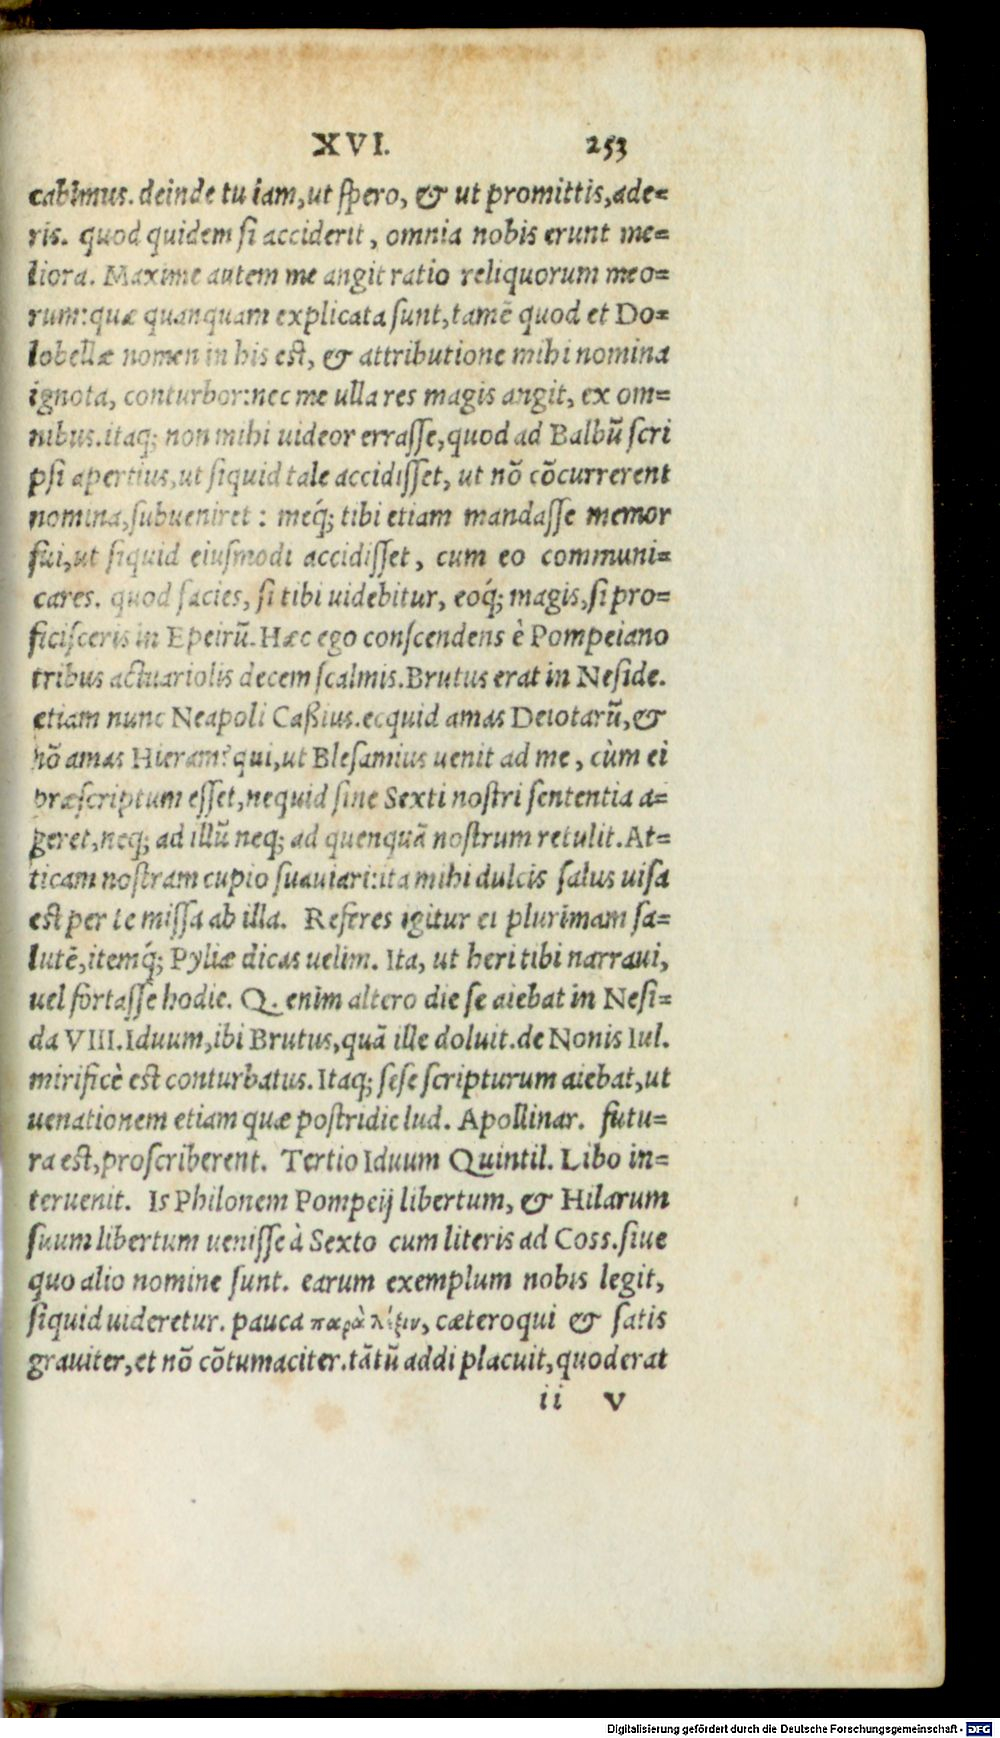 XVI. 253
cabimus. deinde tu iam, ut spero, & ut promittis, ade=
ris. quod quidem si acciderit, omnia nobis erunt me=
liora. Maxime autem me angit ratio reliquorum meo=
rum: quæ quanquam explicata sunt, tamē quod et Do=
lobellæ nomen in his est, & attributione mihi nomina
ignota, conturbor: nec me ulla res magis angit, ex om=
nibus. itaq; non mihi uideor errasse, quod ad Balbū scri
psi apertius, ut siquid tale accidisset, ut nō cōcurrerent
nomina, subueniret: meq́; tibi etiam mandasse memor
sui, ut siquid eiusmodi accidisset, cum eo communi=
cares. quod facies, si tibi uidebitur, eoq́; magis, si pro=
ficisceris in Epeirū. Hæc ego conscendens è Pompeiano
tribus actuariolis decem scalmis. Brutus erat in Neside.
etiam nunc Neapoli Caßius. ecquid amas Deiotarū, &
nō amas Hieram? qui, ut Blesamius uenit ad me, cùm ei
præscriptum esset, nequid sine Sexti nostri sententia a=
geret, neq; ad illū neq; ad quenquā nostrum retulit. At=
ticam nostram cupio suauiari: ita mihi dulcis salus uisa
est per te missa ab illa. Referes igitur ei plurimam sa=
lutē, itemq́; Pyliæ dicas uelim. Ita, ut heri tibi narraui,
uel fortasse hodie. Q. enim altero die se aiebat in Nesi=
da VIII. Iduum, ibi Brutus, quā ille doluit. de Nonis Iul.
mirificè est conturbatus. Itaq; sese scripturum aiebat, ut
uenationem etiam quæ postridie lud. Apollinar. futu=
ra est, proscriberent. Tertio Iduum Quintil. Libo in=
teruenit. Is Philonem Pompeij libertum, & Hilarum
suum libertum uenisse à Sexto cum literis ad Coss. siue
quo alio nomine sunt. earum exemplum nobis legit,
siquid uideretur. pauca παρὰ λέξιν, cæteroqui & satis
grauiter, et nō cōtumaciter. tātū addi placuit, quod erat
ii v
Digitalisierung gefördert durch die Deutsche Forschungsgemeinschaft - DFG